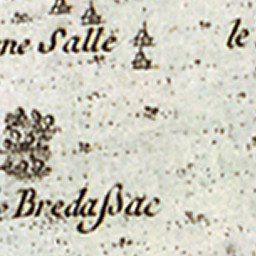 ne Salle
le
e Bredaßac